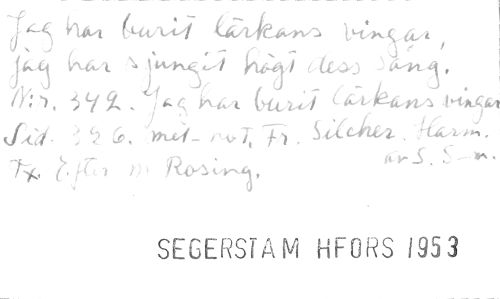 Jag har burit lärkans vingar,
jag har sjungit högt dess sång.
N:r. 342. Jag har burit lärkans vingar
Sid. 326. mel-not, Fr. Silcher. Harm.
av S. S-m.
Tx. Efter M Rosing.
SEGERSTAM HFORS 1953